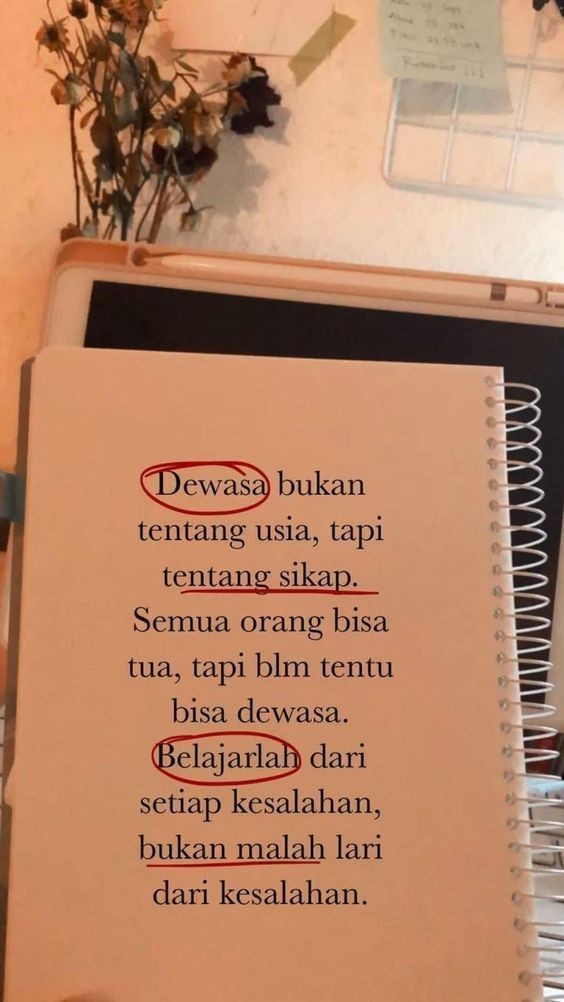 Dewasa bukan
tentang usia, tapi
tentang sikap.
Semua orang bisa
tua, tapi blm tentu
bisa dewasa.
Belajarlah dari
setiap kesalahan,
bukan malah lari
dari kesalahan.